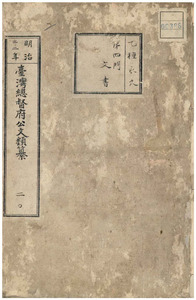 乙種永久
第四門
文書
明治
三十年
臺灣總督府公文類纂
二〇